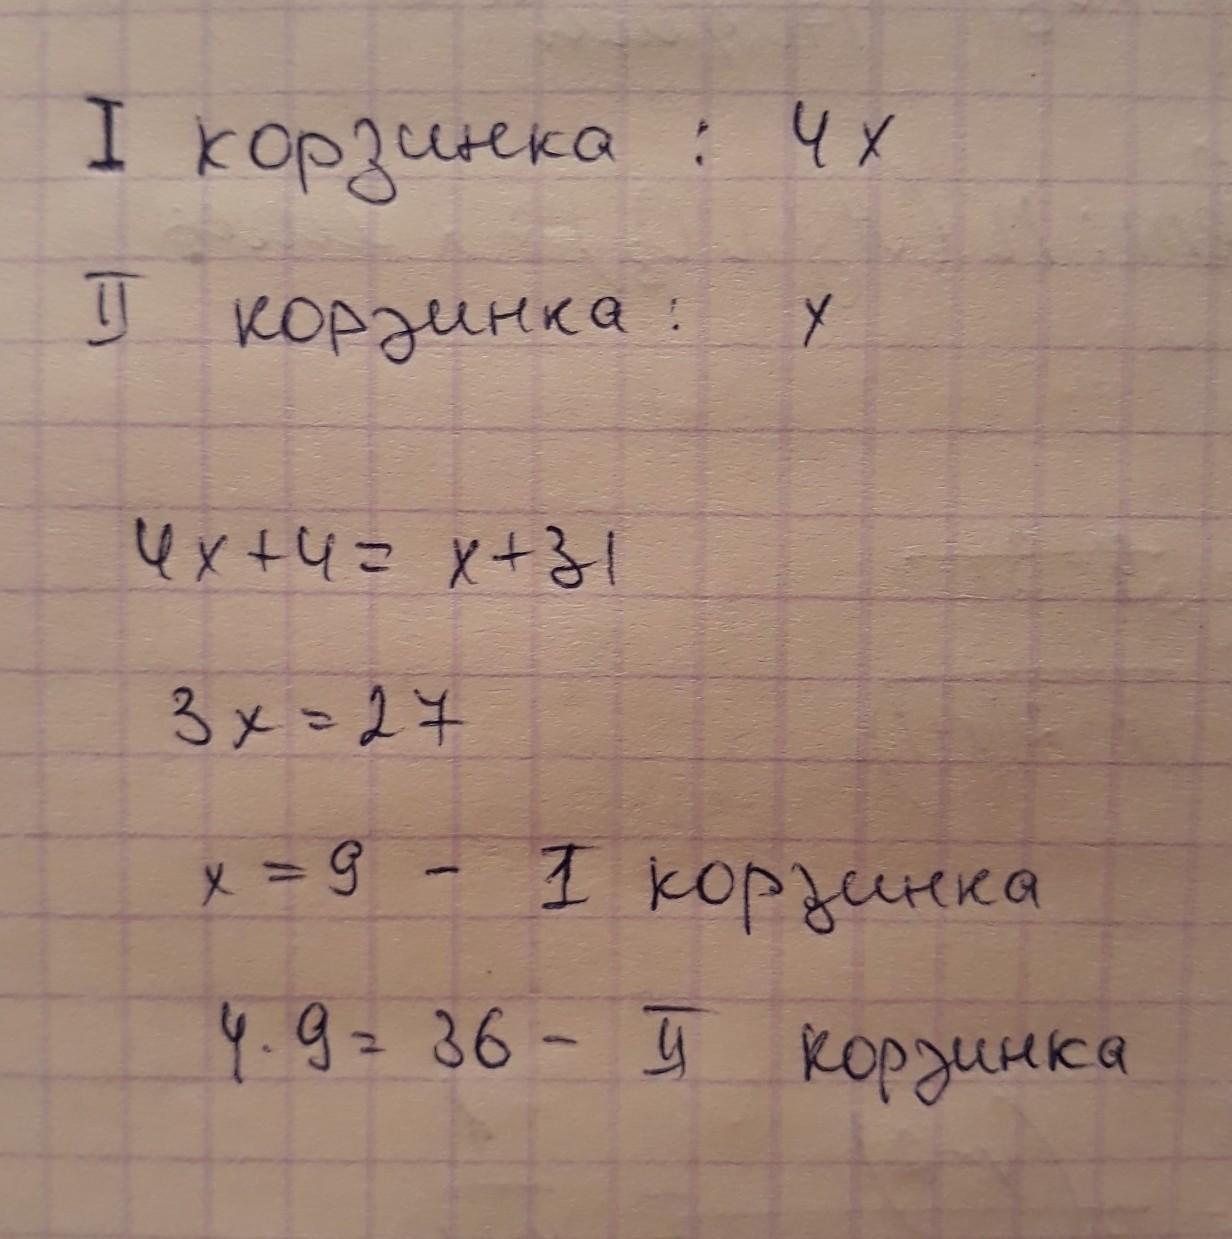 I корзинка : 4x
II корзинка : x
4x+4= x+31
3x=27
x=9 - I корзинка
4.9= 36 - II корзинка